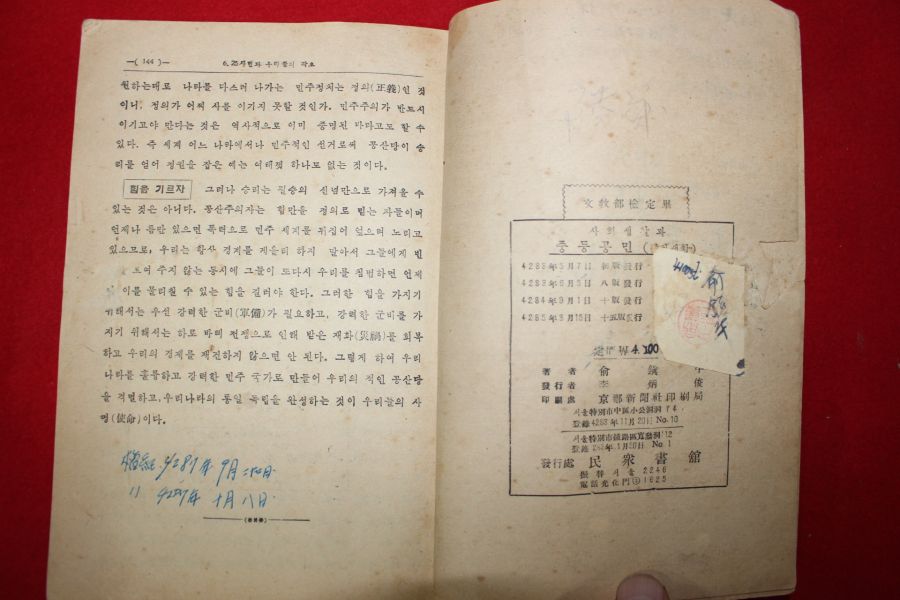 —( 144 )— 6.25사변과 우리들의 각오
원하는대로 나라를 다스려 나가는 민주정치는 정의(正義)인 것
이니, 정의가 어찌 사를 이기지 못할 것인가. 민주주의가 반드시
이기고야 만다는 것은 역사적으로 이미 증명된 바라고도 할 수
있다. 즉 세계 어느 나라에서나 민주적인 선거로써 공산당이 승
리를 얻어 정권을 잡은 예는 여태껏 하나도 없는 것이다.
힘을 기르자 그러나 승리는 필승의 신념만으로 가져올 수
있는 것은 아니다. 공산주의자는 힘만을 정의로 믿는 자들이며
언제나 틈만 있으면 폭력으로 민주 세계를 뒤집어 엎으려 노리고
있으므로, 우리는 항상 경계를 게을리 하지 말아서 그들에게 빈
보여 주지 않는 동시에 그들이 또다시 우리를 침범하면 언제
이를 물리칠 수 있는 힘을 길러야 한다. 그러한 힘을 가지기
위해서는 우선 강력한 군비(軍備)가 필요하고, 강력한 군비를 가
지기 위해서는 하로 바삐 전쟁으로 인해 받은 재화(災禍)를 회복
하고 우리의 경제를 재건하지 않으면 안 된다. 그렇게 하여 우리
나라를 훌륭하고 강력한 민주 국가로 만들어 우리의 적인 공산당
을 격멸하고, 우리나라의 통일 독립을 완성하는 것이 우리들의 사
명(使命)이다.
4287年 9月 二十日
〃 4287年 十月 八日
文敎部檢定畢
사회생활과
중등공민
4283年5月7日 初版發行
4283年6月5日 八版發行
4284年9月1日 十版發行
4285年3月15日 十五版發行
定價 ₩4,200
著者 兪鎭午
發行者 李炳俊
印刷處 京都新聞社印刷局
서울特別市中區小公洞 74
登錄 4283年11月20日 No.10
서울特別市鍾路區寬勳洞 112
No 1
發行處 民衆書館
振替 서울 2246
電話光化門③1625